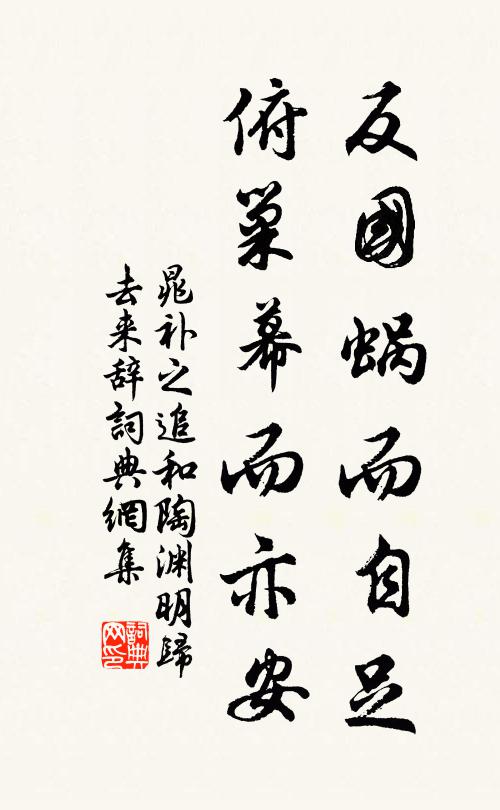 反國蝸而自足
俯巢幕而亦安
晁补之追和陶渊明歸
去来辞詞典網集
詞典
网印